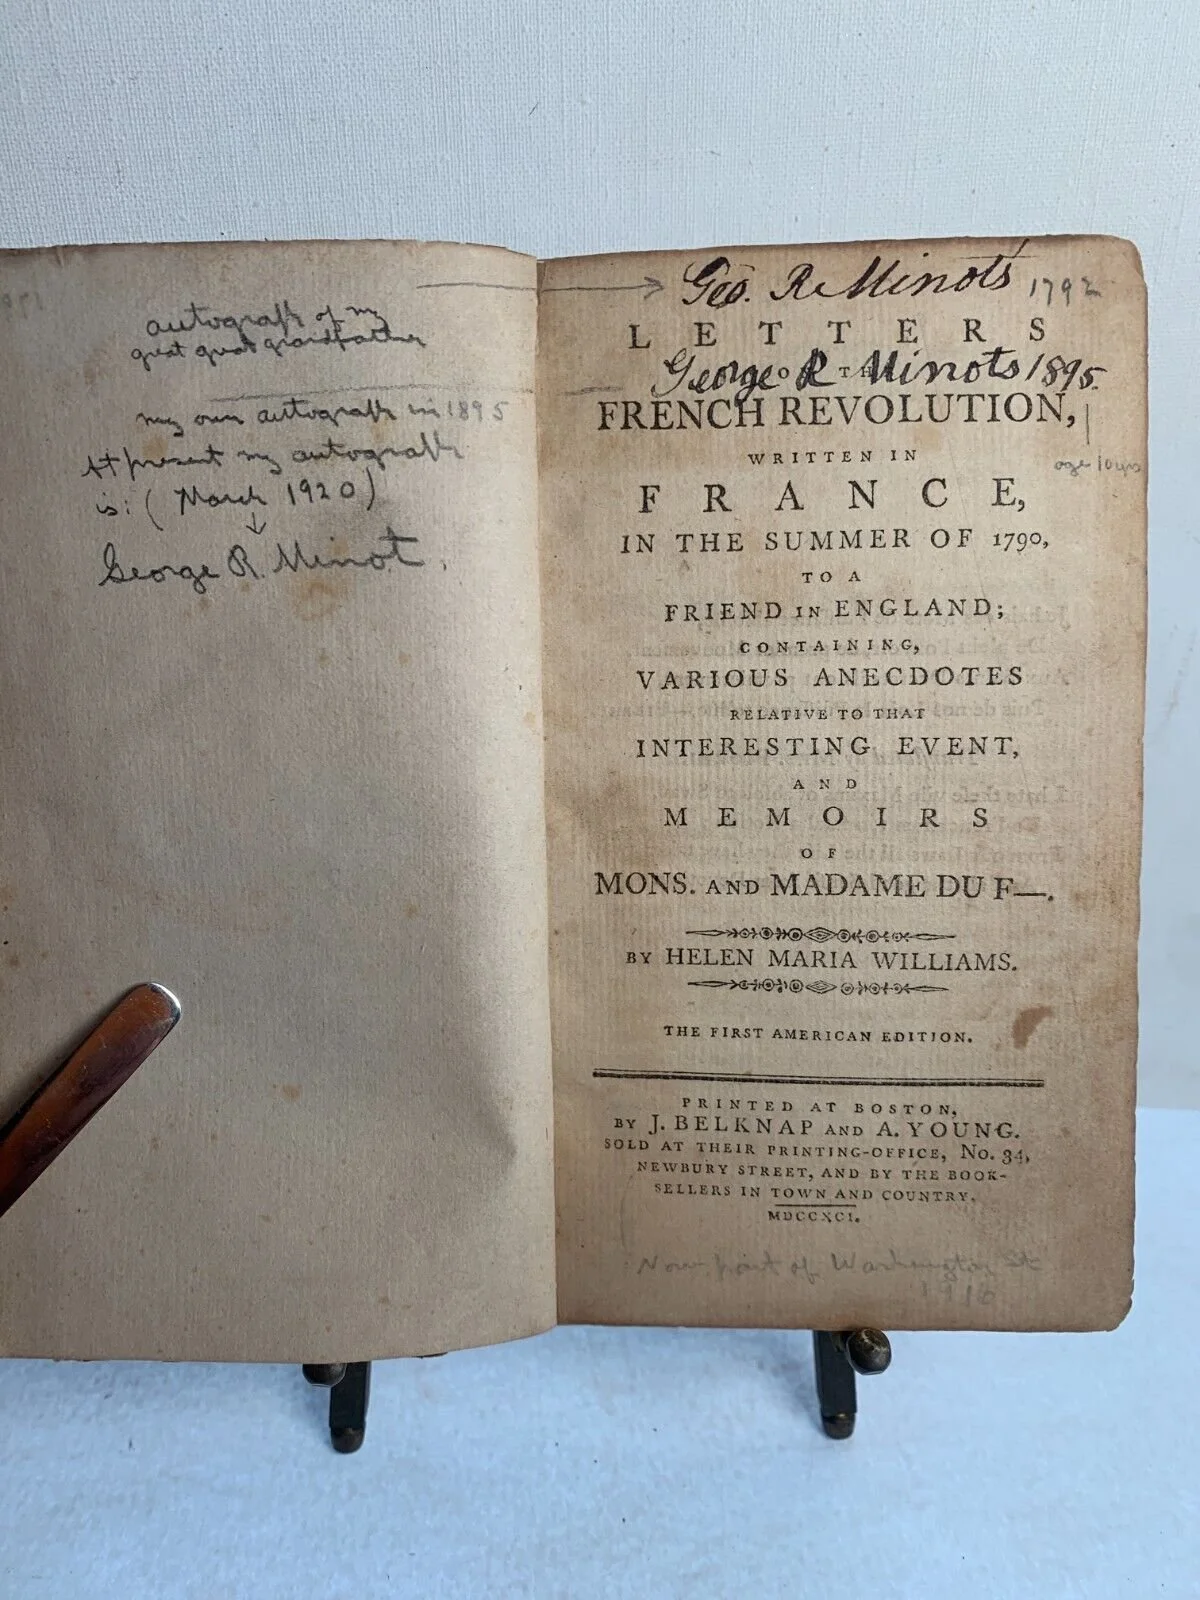 autograph of my
great great grandfather
my own autograph in 1895
At present my autograph
is: ( March 1920 )
George R. Minot.
Geo. R. Minot's 1792
LETTERS
ON THE
George R Minots 1895.
FRENCH REVOLUTION,
age 10 yrs
WRITTEN IN
FRANCE,
IN THE SUMMER OF 1790,
TO A
FRIEND IN ENGLAND;
CONTAINING,
VARIOUS ANECDOTES
RELATIVE TO THAT
INTERESTING EVENT,
AND
MEMOIRS
OF
MONS. AND MADAME DU F—.
BY HELEN MARIA WILLIAMS.
THE FIRST AMERICAN EDITION.
PRINTED AT BOSTON,
BY J. BELKNAP AND A. YOUNG.
SOLD AT THEIR PRINTING-OFFICE, No. 34,
NEWBURY STREET, AND BY THE BOOK-
SELLERS IN TOWN AND COUNTRY.
MDCCXCI.
Now part of Washington St